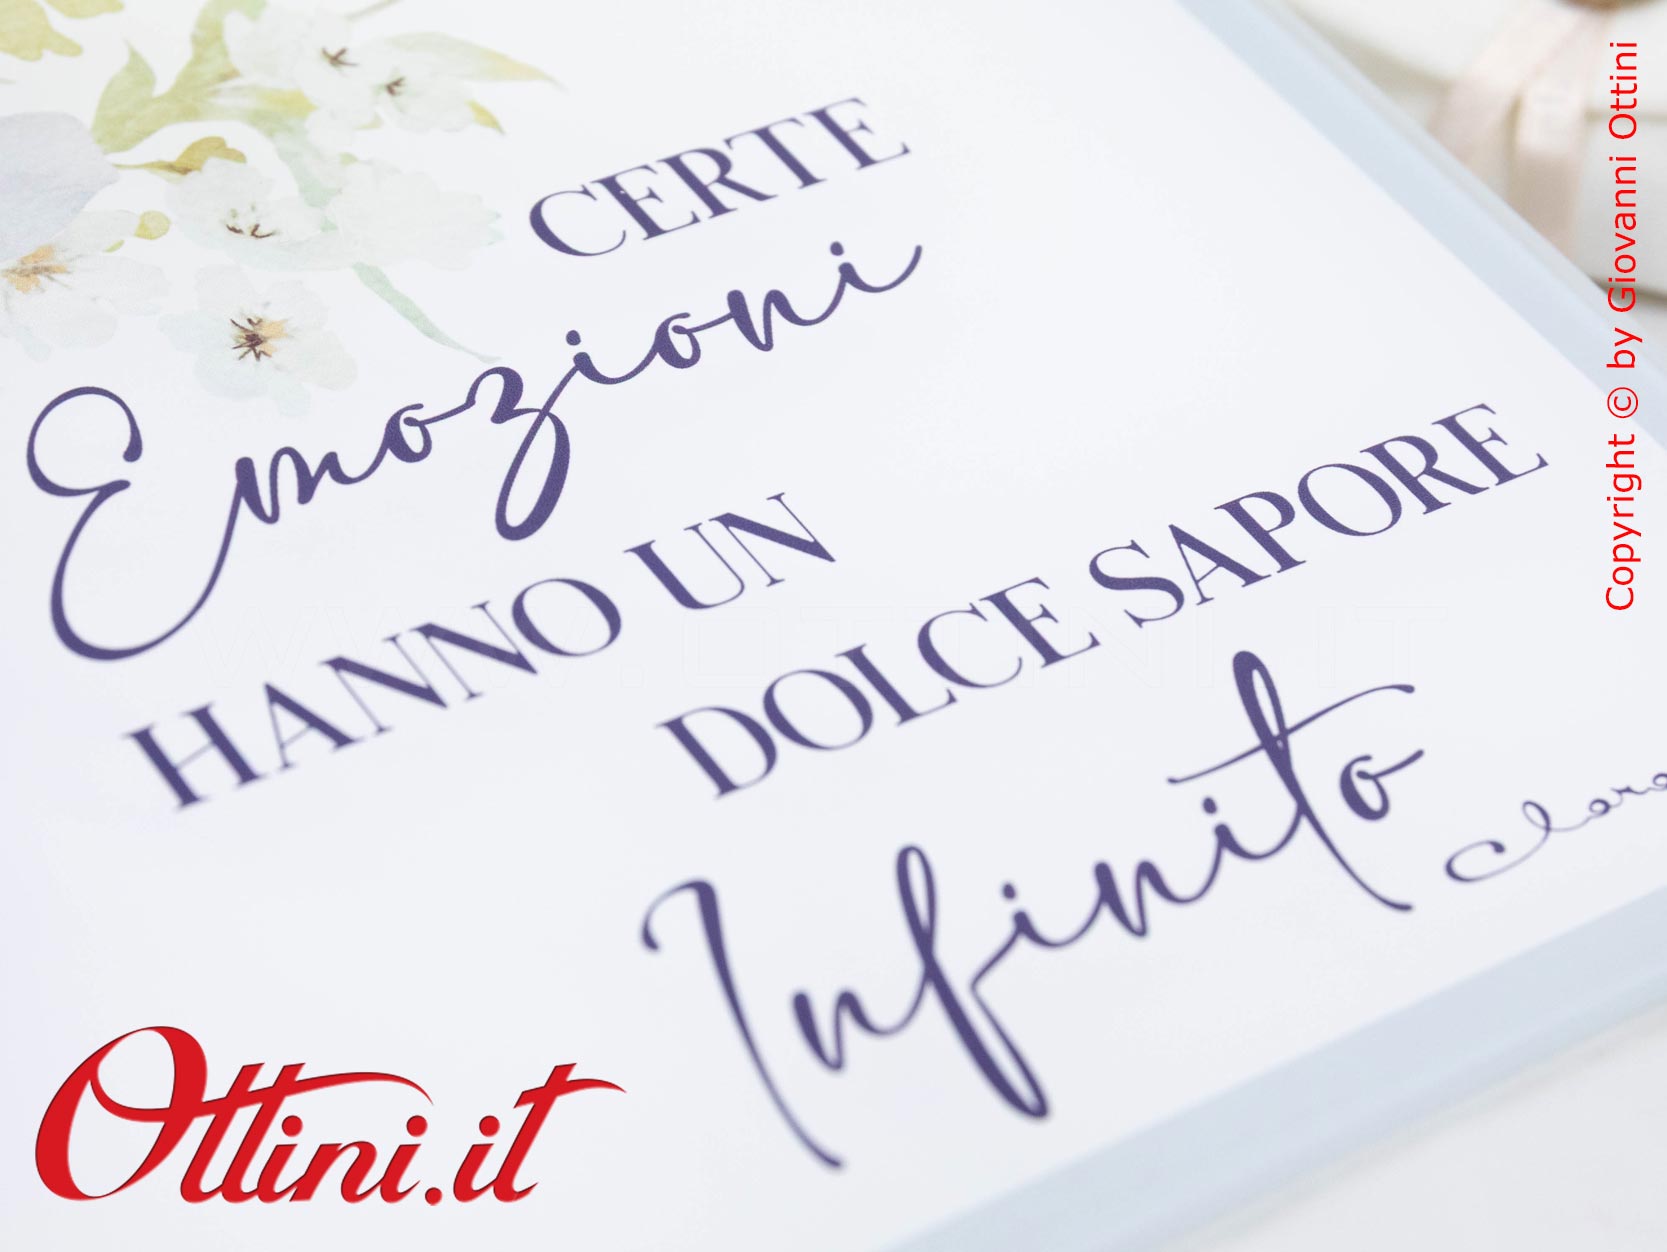 CERTE
Emozioni
HANNO UN
DOLCE SAPORE
Infinito
Ottini.it
Copyright © by Giovanni Ottini
WWW.OTTINI.IT